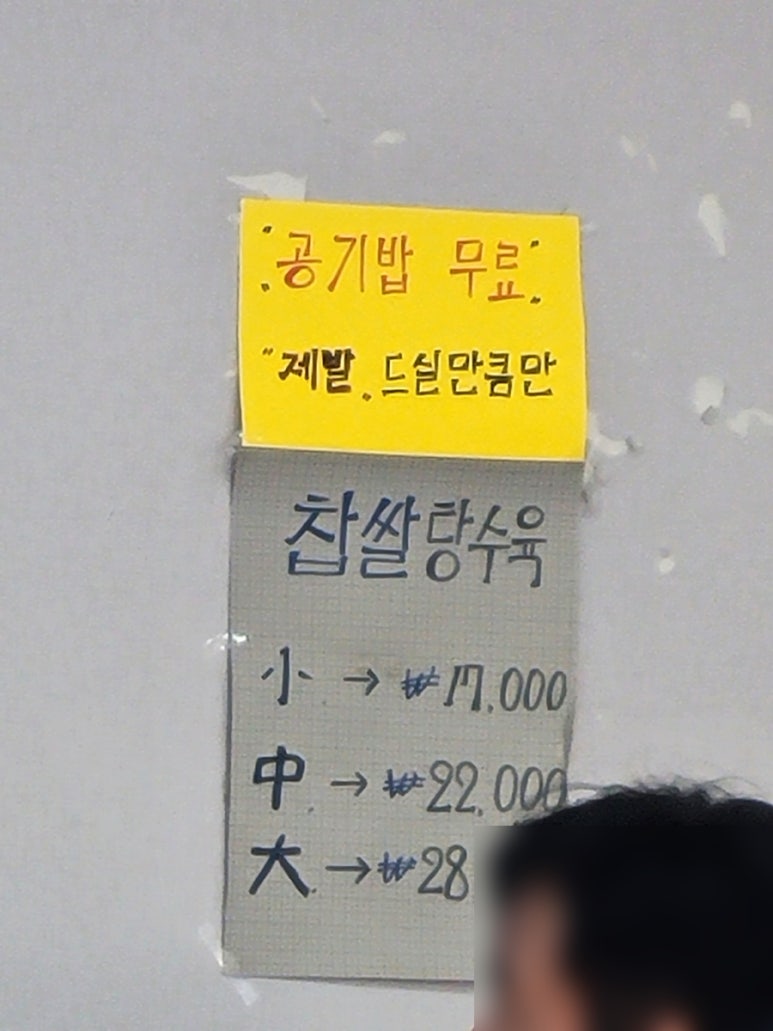 "공기밥 무료"
"제발. 드실만큼만
찹쌀탕수육
小 → ₩17.000
中. → ₩22.000
大. → ₩28